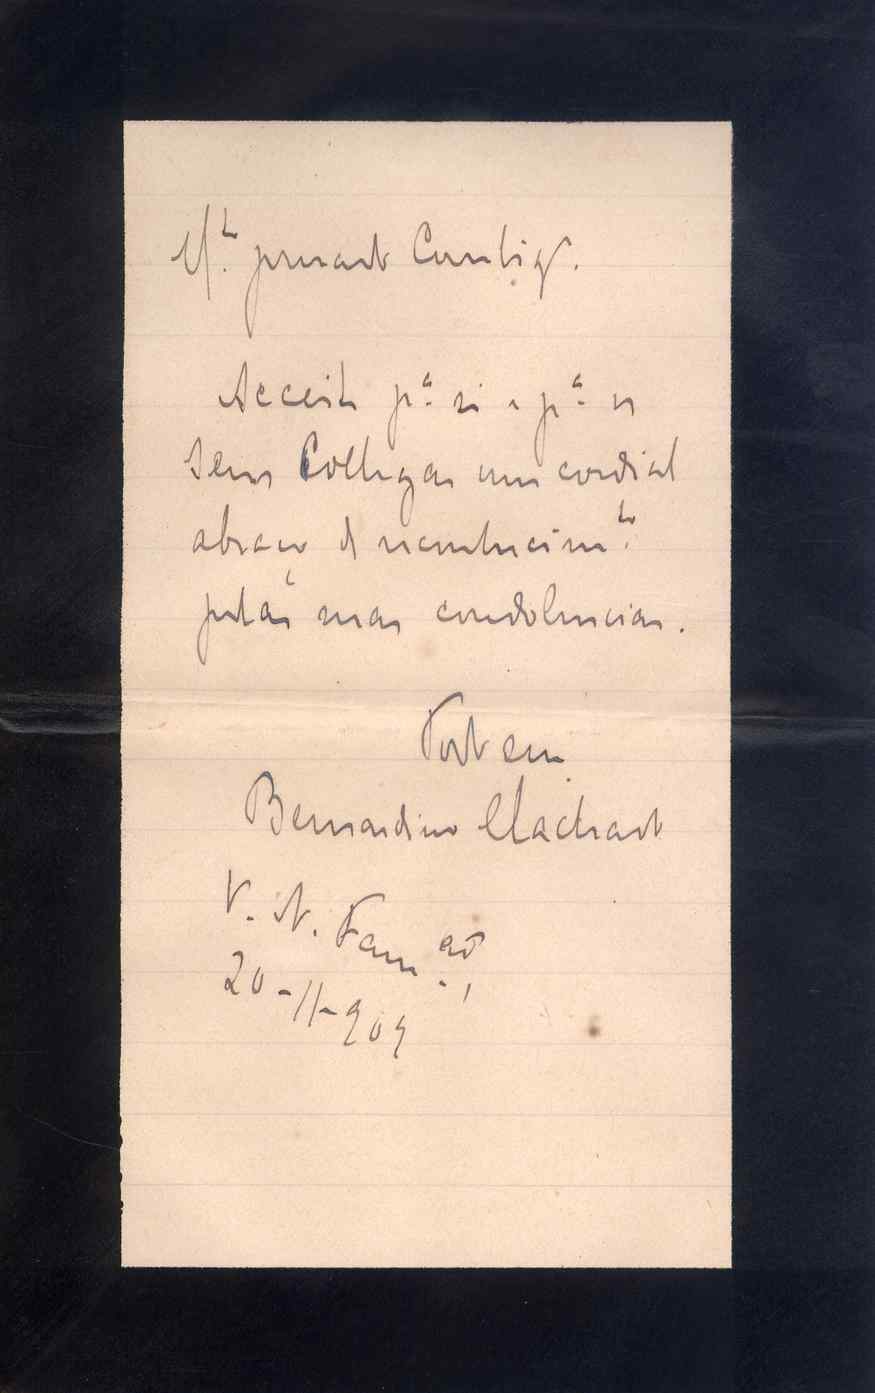 M.to presado Correlig.
Acceite p.a si e p.a os
seus Collegas um cordial
abraço de reconhecim.to
pelas suas condolencias.
Todo seu
Bernardino Machado
V. N. Fam.ão,
20-11-909